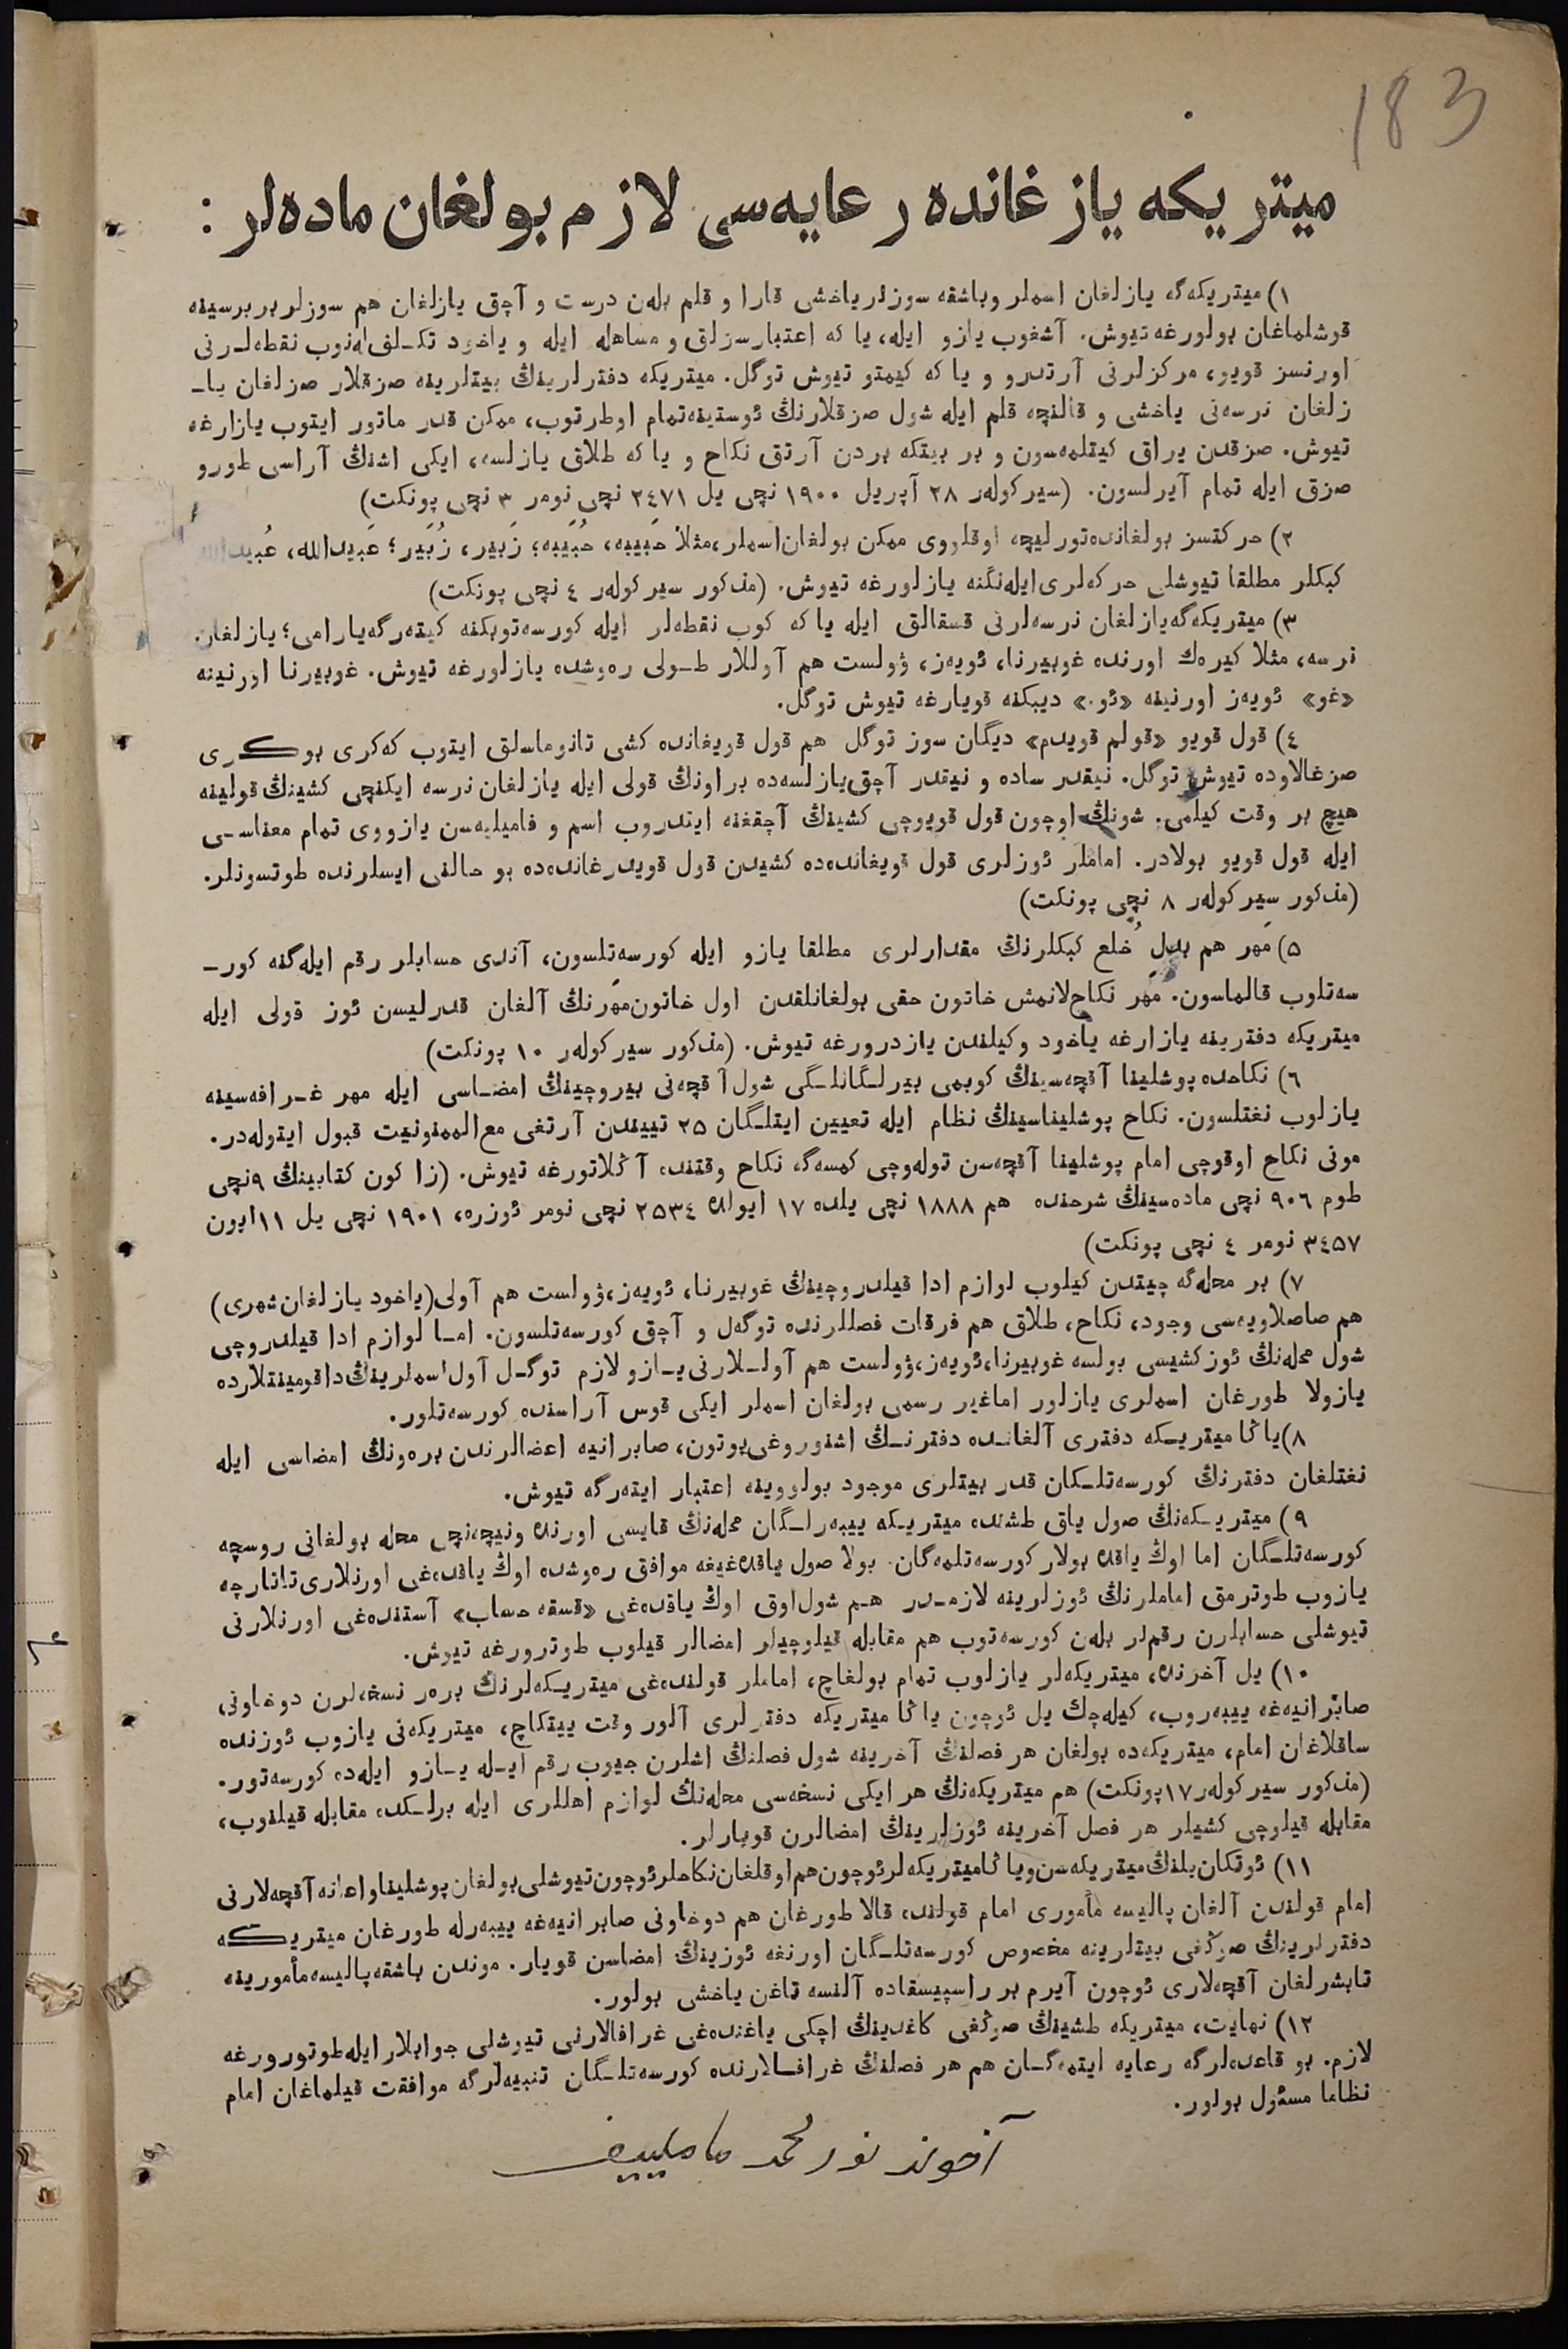 183
ميتريكه يازغانده رعايه‌سى لازم بولغان ماده‌لر :
١) ميتريكه‌گه يازلغان اسملر وباشقه سوزلر ياخشى قارا و قلم بله‌ن درست و آچق يازلغان هم سوزلر بربرسينه
قوشلماغان بولورغه تيوش. آشغوب يازو ايله، يا كه اعتبارسزلق و مساهله ايله و ياخود تكـلف له‌نوب نقطه‌لـرنى
اورنسز قويو، مركزلرنى آرتدرو و يا كه كيمتو تيوش توگل. ميتريكه دفترلرينڭ بيتلرينه صزقلار صزلغان يا-
زلغان نرسه‌نى ياخشى و قالنچه قلم ايله شول صزقلارنڭ ئوستينه‌تمام اوطرتوب، ممكن قدر ماتور ايتوب يازارغه
تيوش. صزقدن يراق كيتلمه‌سون و بر بيتكه بردن آرتق نكاح و يا كه طلاق يازلسه، ايكى اشنڭ آراسى طورو
صزق ايله تمام آيرلسون. (سيركوله‌ر ٢٨ آپريل ١٩٠٠ نچى يل ٢٤٧١ نچى نومر ٣ نچى پونكت)
٢) حركتسز بولغانده‌تورليچه اوقلووى ممكن بولغان‌اسملر، مثلا حَبيبه، حُبَيبه؛ زَبير، زُبَير؛ عَبيدالله، عُبيدالله
كبكلر مطلقا تيوشلى حركه‌لرى‌ايله‌نگنه يازلورغه تيوش. (مذكور سيركوله‌ر ٤ نچى پونكت)
٣) ميتريكه‌گه‌يازلغان نرسه‌لرنى قسقالق ايله ياكه كوب نقطه‌لر ايله كورسه‌توبكنه كيته‌رگه‌يارامى؛ يازلغان
نرسه، مثلا كيره‌ك اورنده غوبيرنا، ئويه‌ز، ۋولست هم آوللار طـولى ره‌وشده يازلورغه تيوش. غوبيرنا اورنينه
«غو» ئويه‌ز اورنينه «ئو.» ديبكنه قويارغه تيوش توگل.
٤) قول قويو «قولم قويدم» ديگان سوز توگل هم قول قويغانده كشى تانوماسلق ايتوب كه‌كرى بوكرى
صزغالاوده تيوش توگل. نيقدر ساده و نيقدر آچق‌يازلسه‌ده براونڭ قولى ايله يازلغان نرسه ايكنچى كشينڭ قولينه
هيچ بر وقت كيلمى. شونڭ اوچون قول قويوچى كشينڭ آچقغنه ايتدروب اسم و فاميليه‌سن يازووى تمام معناسـى
ايله قول قويو بولادر. اماملر ئوزلرى قول قويغانده‌ده كشيدن قول قويدرغانده‌ده بو حالنى ايسلرنده طوتسونلر.
(مذكور سيركوله‌ر ٨ نچى پونكت)
٥) مَهر هم بدل خُلع كبكلرنڭ مقدارلرى مطلقا يازو ايله كورسه‌تلسون، آندى حسابلر رقم ايله‌گنه كور-
سه‌تلوب قالماسون. مَهر نكاح‌لانمش خاتون حقى بولغانلقدن اول خاتون‌مهرنڭ آلغان قدرليسن ئوز قولى ايله
ميتريكه دفترينه يازارغه ياخود وكيلندن يازدرورغه تيوش. (مذكور سيركوله‌ر ١٠ پونكت)
٦) نكاحده پوشلينا آقچه‌سينڭ كوبمى بيرلـگانلـگى شول آقچه‌نى بيروچينڭ امضـاسى ايله مهر غـرافه‌سينه
يازلوب نغتلسون. نكاح پوشليناسينڭ نظام ايله تعيين ايتلـگان ٢٥ تييندن آرتغى مع‌الممنونيت قبول ايتوله‌در.
مونى نكاح اوقوچى امام پوشلينا آقچه‌سن توله‌وچى كمسه‌گه نكاح وقتنده آڭلاتورغه تيوش. (زاكون كتابينڭ ٩نچى
طوم ٩٠٦ نچى ماده‌سينڭ شرحنده هم ١٨٨٨ نچى يلده ١٧ ايولده ٢٥٣٤ نچى نومر ئوزره، ١٩٠١ نچى يل ١١ايون
٣٤٥٧ نومر ٤ نچى پونكت)
٧) بر محله‌گه چيتدن كيلوب لوازم ادا قيلدروچينڭ غوبيرنا، ئويه‌ز،ۋولست هم آولى(ياخود يازلغان‌شهرى)
هم صاصلاويه‌سى وجود، نكاح، طلاق هم فرقات فصللرنده توگه‌ل و آچق كورسه‌تلسون. امـا لوازم ادا قيلدروچى
شول محله‌نڭ ئوز كشيسى بولسه غوبيرنا،ئويه‌ز،ۋولست هم آولـلارنى يـازو لازم توگـل آول اسملرينڭ‌داقومينتلارده
يازولا طورغان اسملرى يازلور اماغير رسمى بولغان اسملر ايكى قوس آراسنده كورسه‌تلور.
٨)ياڭا ميتريـكه دفترى آلغانـده دفترنـڭ اشنوروغى‌بوتون، صابرانيه اعضالرندن بره‌ونڭ امضاسى ايله
نغتلغان دفترنڭ كورسه‌تلـكان قدر بيتلرى موجود بولووينه اعتبار ايته‌رگه تيوش.
٩) ميتريـكه‌نڭ صول ياق طشنده ميتريـكه ييبه‌رلـگان محله‌نڭ قايسى اورنده ونيچه‌نچى محله بولغانى روسچه
كورسه‌تلـگان اما اوڭ ياقده بولار كورسه‌تلمه‌گان. بولا صول ياقده‌غيغه موافق ره‌وشده اوڭ ياقده‌غى اورنلارى‌تاتارچه
يازوب طوترمق اماملرنڭ ئوزلرينه لازمـدر هـم شول‌اوق اوڭ ياقده‌غى «قسقه حساب» آستنده‌غى اورنلارنى
تيوشلى حسابلرن رقم‌لر بله‌ن كورسه‌توب هم مقابله قيلوچيلر امضالر قيلوب طوترورغه تيوش.
١٠) يل آخرنده، ميتريكه‌لر يازلوب تمام بولغاچ، اماملر قولنده‌غى ميتريـكه‌لرنڭ بره‌ر نسخه‌لرن دوخاونى
صابرانيه‌غه ييبه‌روب، كيله‌چك يل ئوچون ياڭا ميتريكه دفترلرى آلور وقت ييتكاچ، ميتريكه‌نى يازوب ئوزنده
ساقلاغان امام، ميتريكه‌ده بولغان هر فصلنڭ آخرينه شول فصلنڭ اشلرن جيوب رقم ايـله يـازو ايله‌ده كورسه‌تور.
(مذكور سيركوله‌ر١٧پونكت) هم ميتريكه‌نڭ هر ايكى نسخه‌سى محله‌نڭ لوازم اهللرى ايله برلـكده مقابله قيلنوب،
مقابله قيلوچى كشيلر هر فصل آخرينه ئوزلرينڭ امضالرن قويارلر.
١١) ئوتكان‌يلنڭ‌ميتريكه‌سن‌وياڭاميتريكه‌لرئوچون‌هم‌اوقلغان‌نكاحلرئوچون‌تيوشلى‌بولغان‌پوشليناواعانه‌آقچه‌لارنى
امام قولندن آلغان پاليسه مأمورى امام قولنده قالا طورغان هم دوخاونى صابرانيه‌غه ييبه‌رله طورغان ميتريكه
دفترلرينڭ صوڭغى بيتلرينه مخصوص كورسه‌تلـگان اورنغه ئوزينڭ امضاسن قويار. موندن باشقه‌پاليسه‌مأمورينه
تابشرلغان آقچه‌لارى ئوچون آيرم بر راسپيسقاده آلنسه تاغن ياخشى بولور.
١٢) نهايت، ميتريكه طشينڭ صوڭغى كاغدينڭ اچكى ياغنده‌غى غرافالارنى تيوشلى جوابلار ايله‌طوتورورغه
لازم. بو قاعده‌لرگه رعايه ايتمه‌گـان هم هر فصلنڭ غرافـالارنده كورسه‌تلـگان تنبيه‌لرگه موافقت قيلماغان امام
نظاما مسئول بولور.
آخوند نورمحمد ماملييف